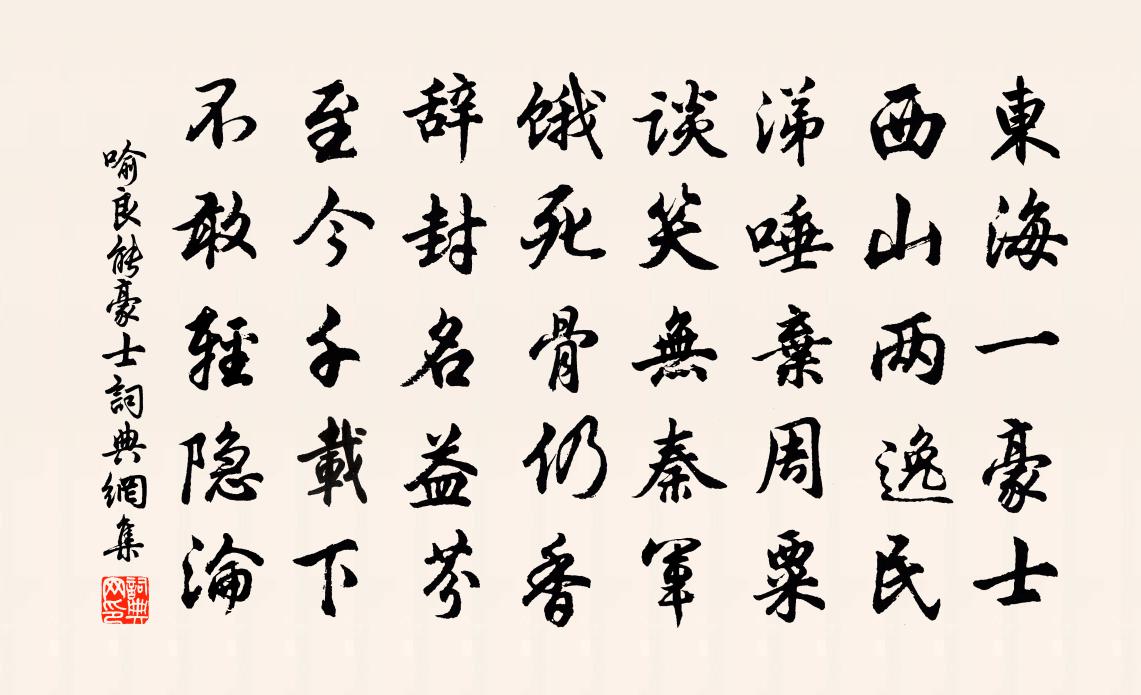 東海一豪士
西山两逸民
涕唾棄周粟
談笑無秦軍
饿死骨仍香
辞封名益芬
至今千載下
不敢輕隐淪
喻良能豪士詞典網集
詞典网印